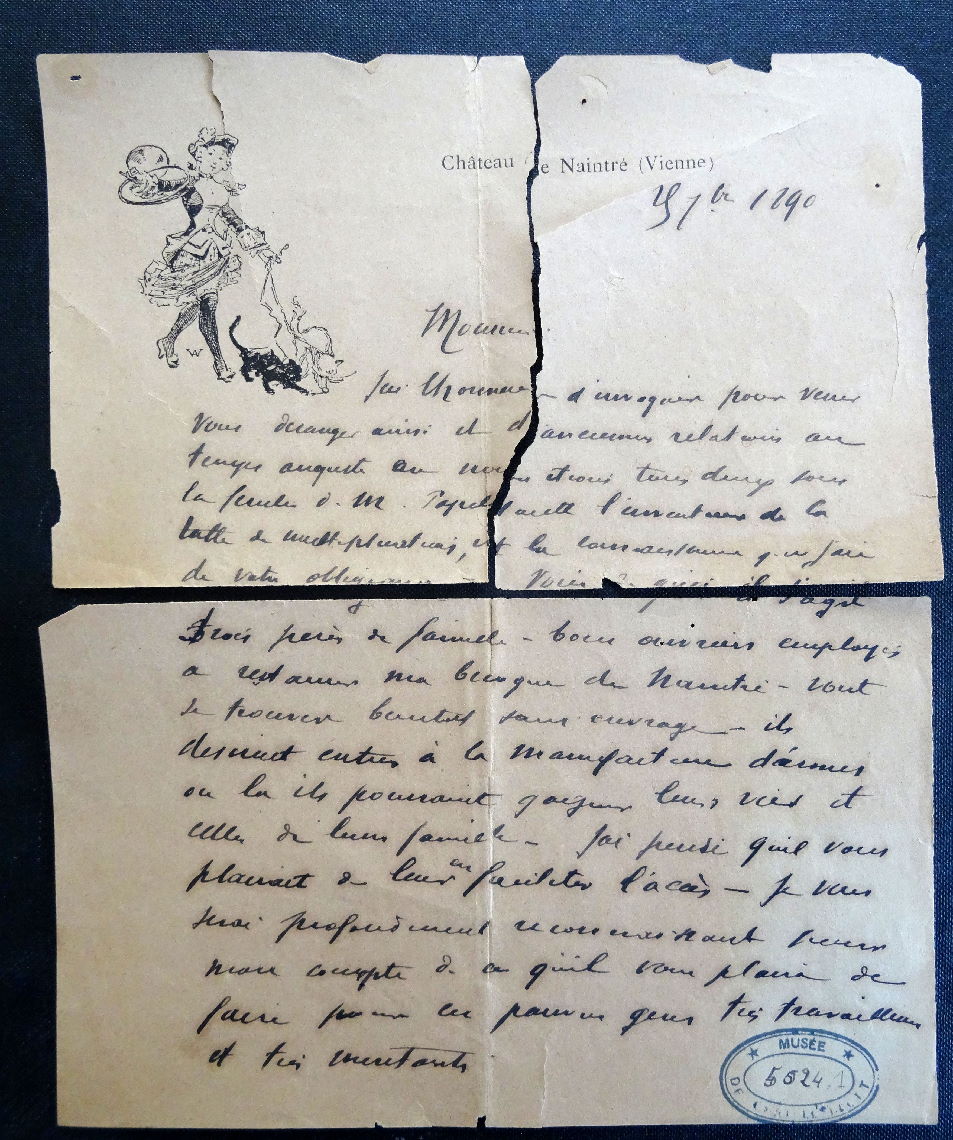 Château de Naintré (Vienne)
1890
W
Monsieur
J'ai l'honneur d'invoquer pour venir
vous déranger ainsi et d'anciennes relations au
temps auguste où nous étions tous deux sous
la férule d. M. l'inventeur de la
table de multiplications, et la connaissance que j'ai
de votre obligeance Voici de quoi il s'agit
trois pères de famille - bons ouvriers employés
a restaurer ma bicoque de Naintré - vont
se trouver bientôt sans ouvrage - ils
desirent entrer à la manufacture d'armes
ou la ils pourraient gagner leurs vies et
celles de leur famille - J'ai pensé qu'il vous
plairait de leur en faciliter l'accès - Je vous
serai profondément reconnaissant pour
mon compte de ce qu'il vous plaira de
faire pour ces pauvres gens très travailleurs
et très méritants
MUSÉE
5524.1